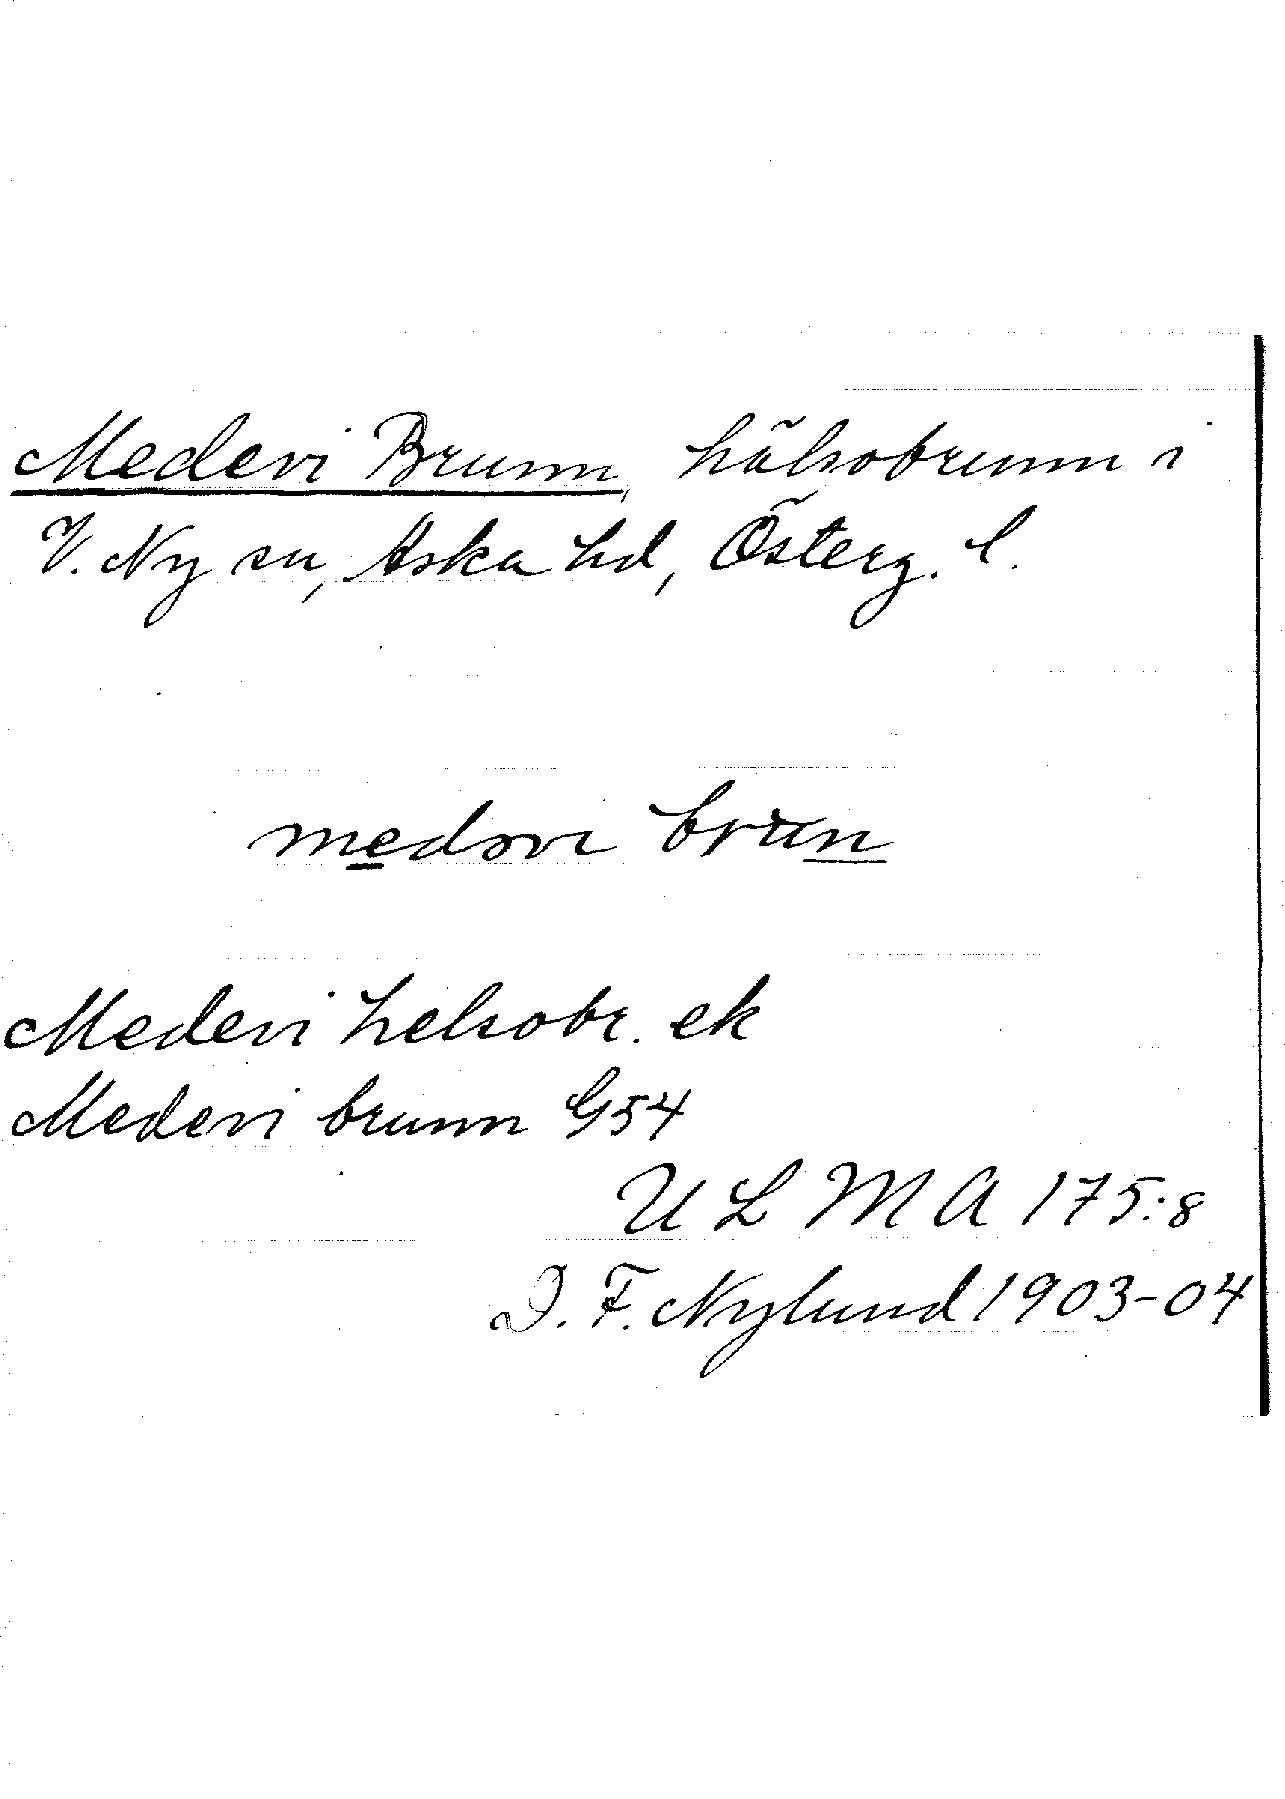 Medevi Brunn, hälsobrunn i
V. Ny sn, Aska hd, Österg. l.
medəvi brun
Medevi helsobr. ek
Medevi brunn G54
U L M A 175:8
I. F. Nylund 1903-04